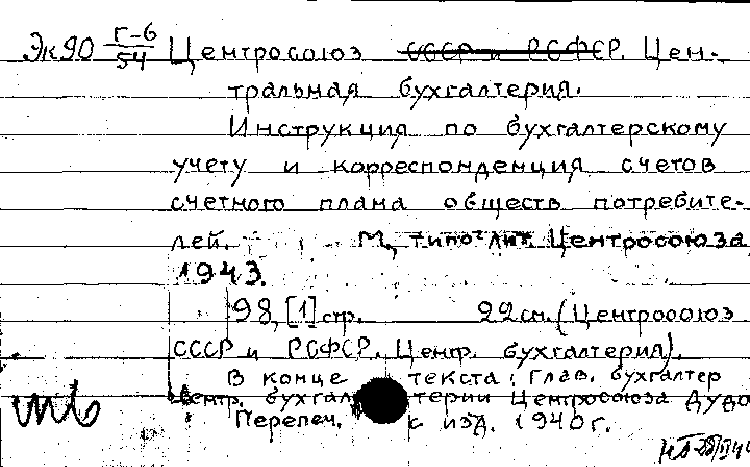 Эк90 Г-6/54 Центросоюз СССР и РСФСР. Цен-
тральная бухгалтерия.
Инструкция по бухгалтерскому
учету и корреспонденция счетов
счетного плана обществ потребите-
лей. М., типо-лит. Центросоюза,
1943.
98, [1] стр. 22 см. (Центросоюз
СССР и РСФСР. Центр. бухгалтерия).
В конце текста: Глав. бухгалтер
Центр. бухгалтерии Центросоюза Дудо
Перепеч. с изд. 1940 г.